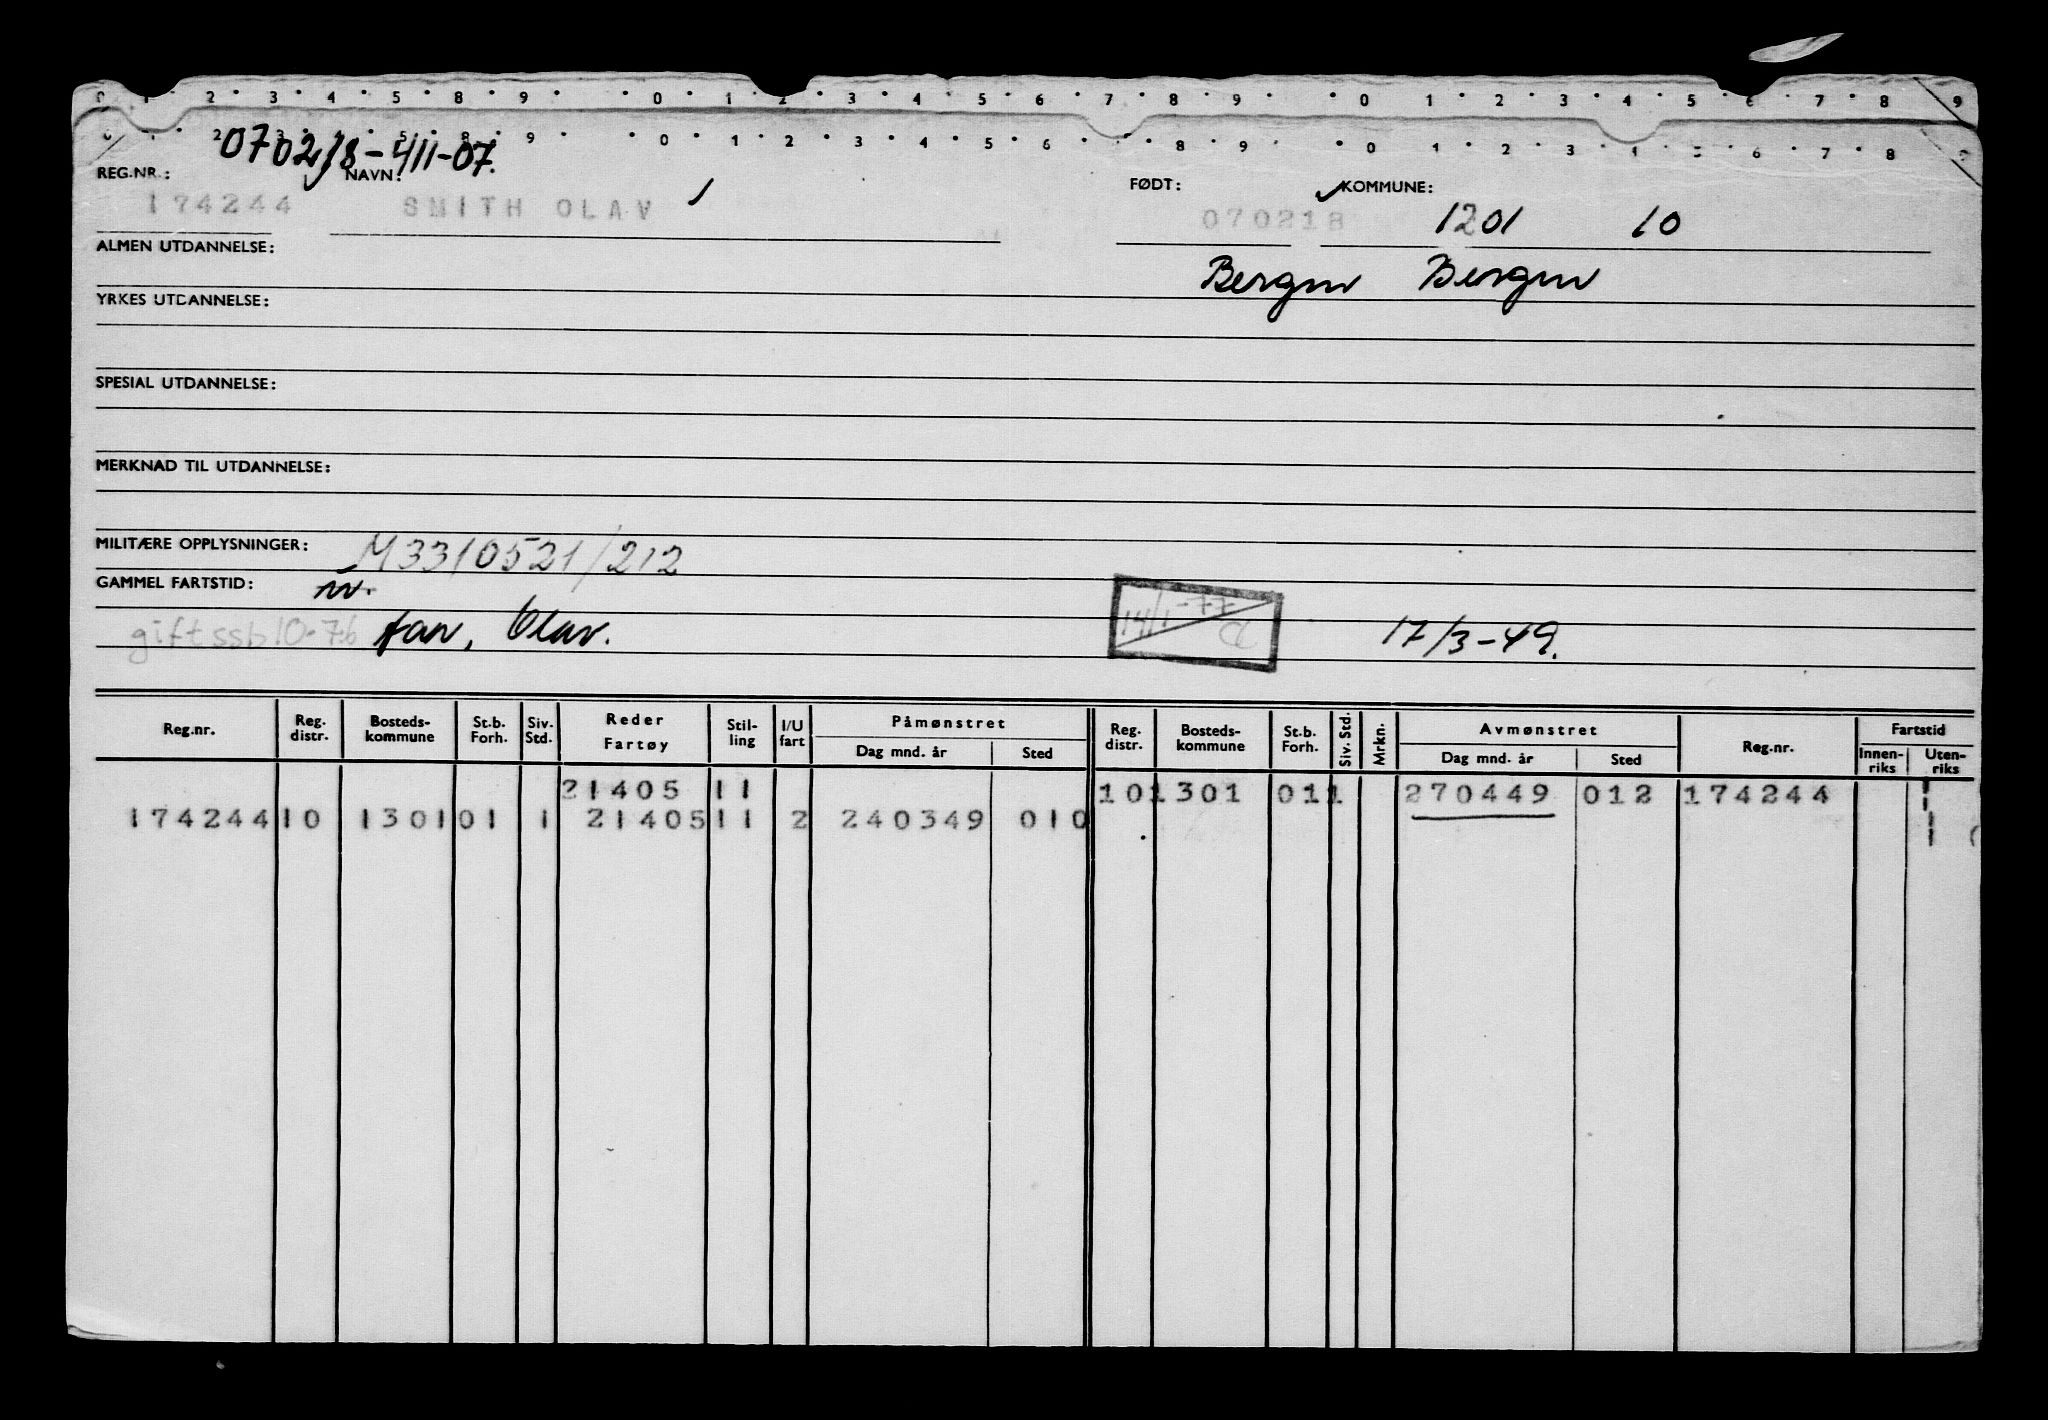 0 1 2 3 4 5 8 9 0 1 2 3 4 5 6 7 8 9 0 1 2 3 4 5 6 7 8 9
2 3 5 8 9 0 1 2 3 4 5 6 7 8 9 0 1 2 3 4 5 6 7 8 9
070218-411-07.
REG.NR.: NAVN: FØDT: KOMMUNE:
174244 SMITH OLAV 070218 1201 10
ALMEN UTDANNELSE:
Bergen Bergen
YRKES UTDANNELSE:
SPESIAL UTDANNELSE:
MERKNAD TIL UTDANNELSE:
MILITÆRE OPPLYSNINGER: M3310521/212
GAMMEL FARTSTID: nv.
14/1-77
gift ssb 10-76 far, Olav. 17/3-49.
Reg.nr. Reg. distr. Bosteds-kommune St.b. Forh. Siv. Std. Reder Fartøy Stil-ling I/U fart Påmønstret Dag mnd. år Sted Reg. distr. Bosteds-kommune St.b. Forh. Siv. Std. Mrkn. Avmønstret Dag mnd. år Sted Reg.nr. Fartstid Innen-riks Uten-riks
21405 11 10 1301 01 1 270449 012 174244 1
174244 10 1301 01 1 21405 11 2 240349 010 1